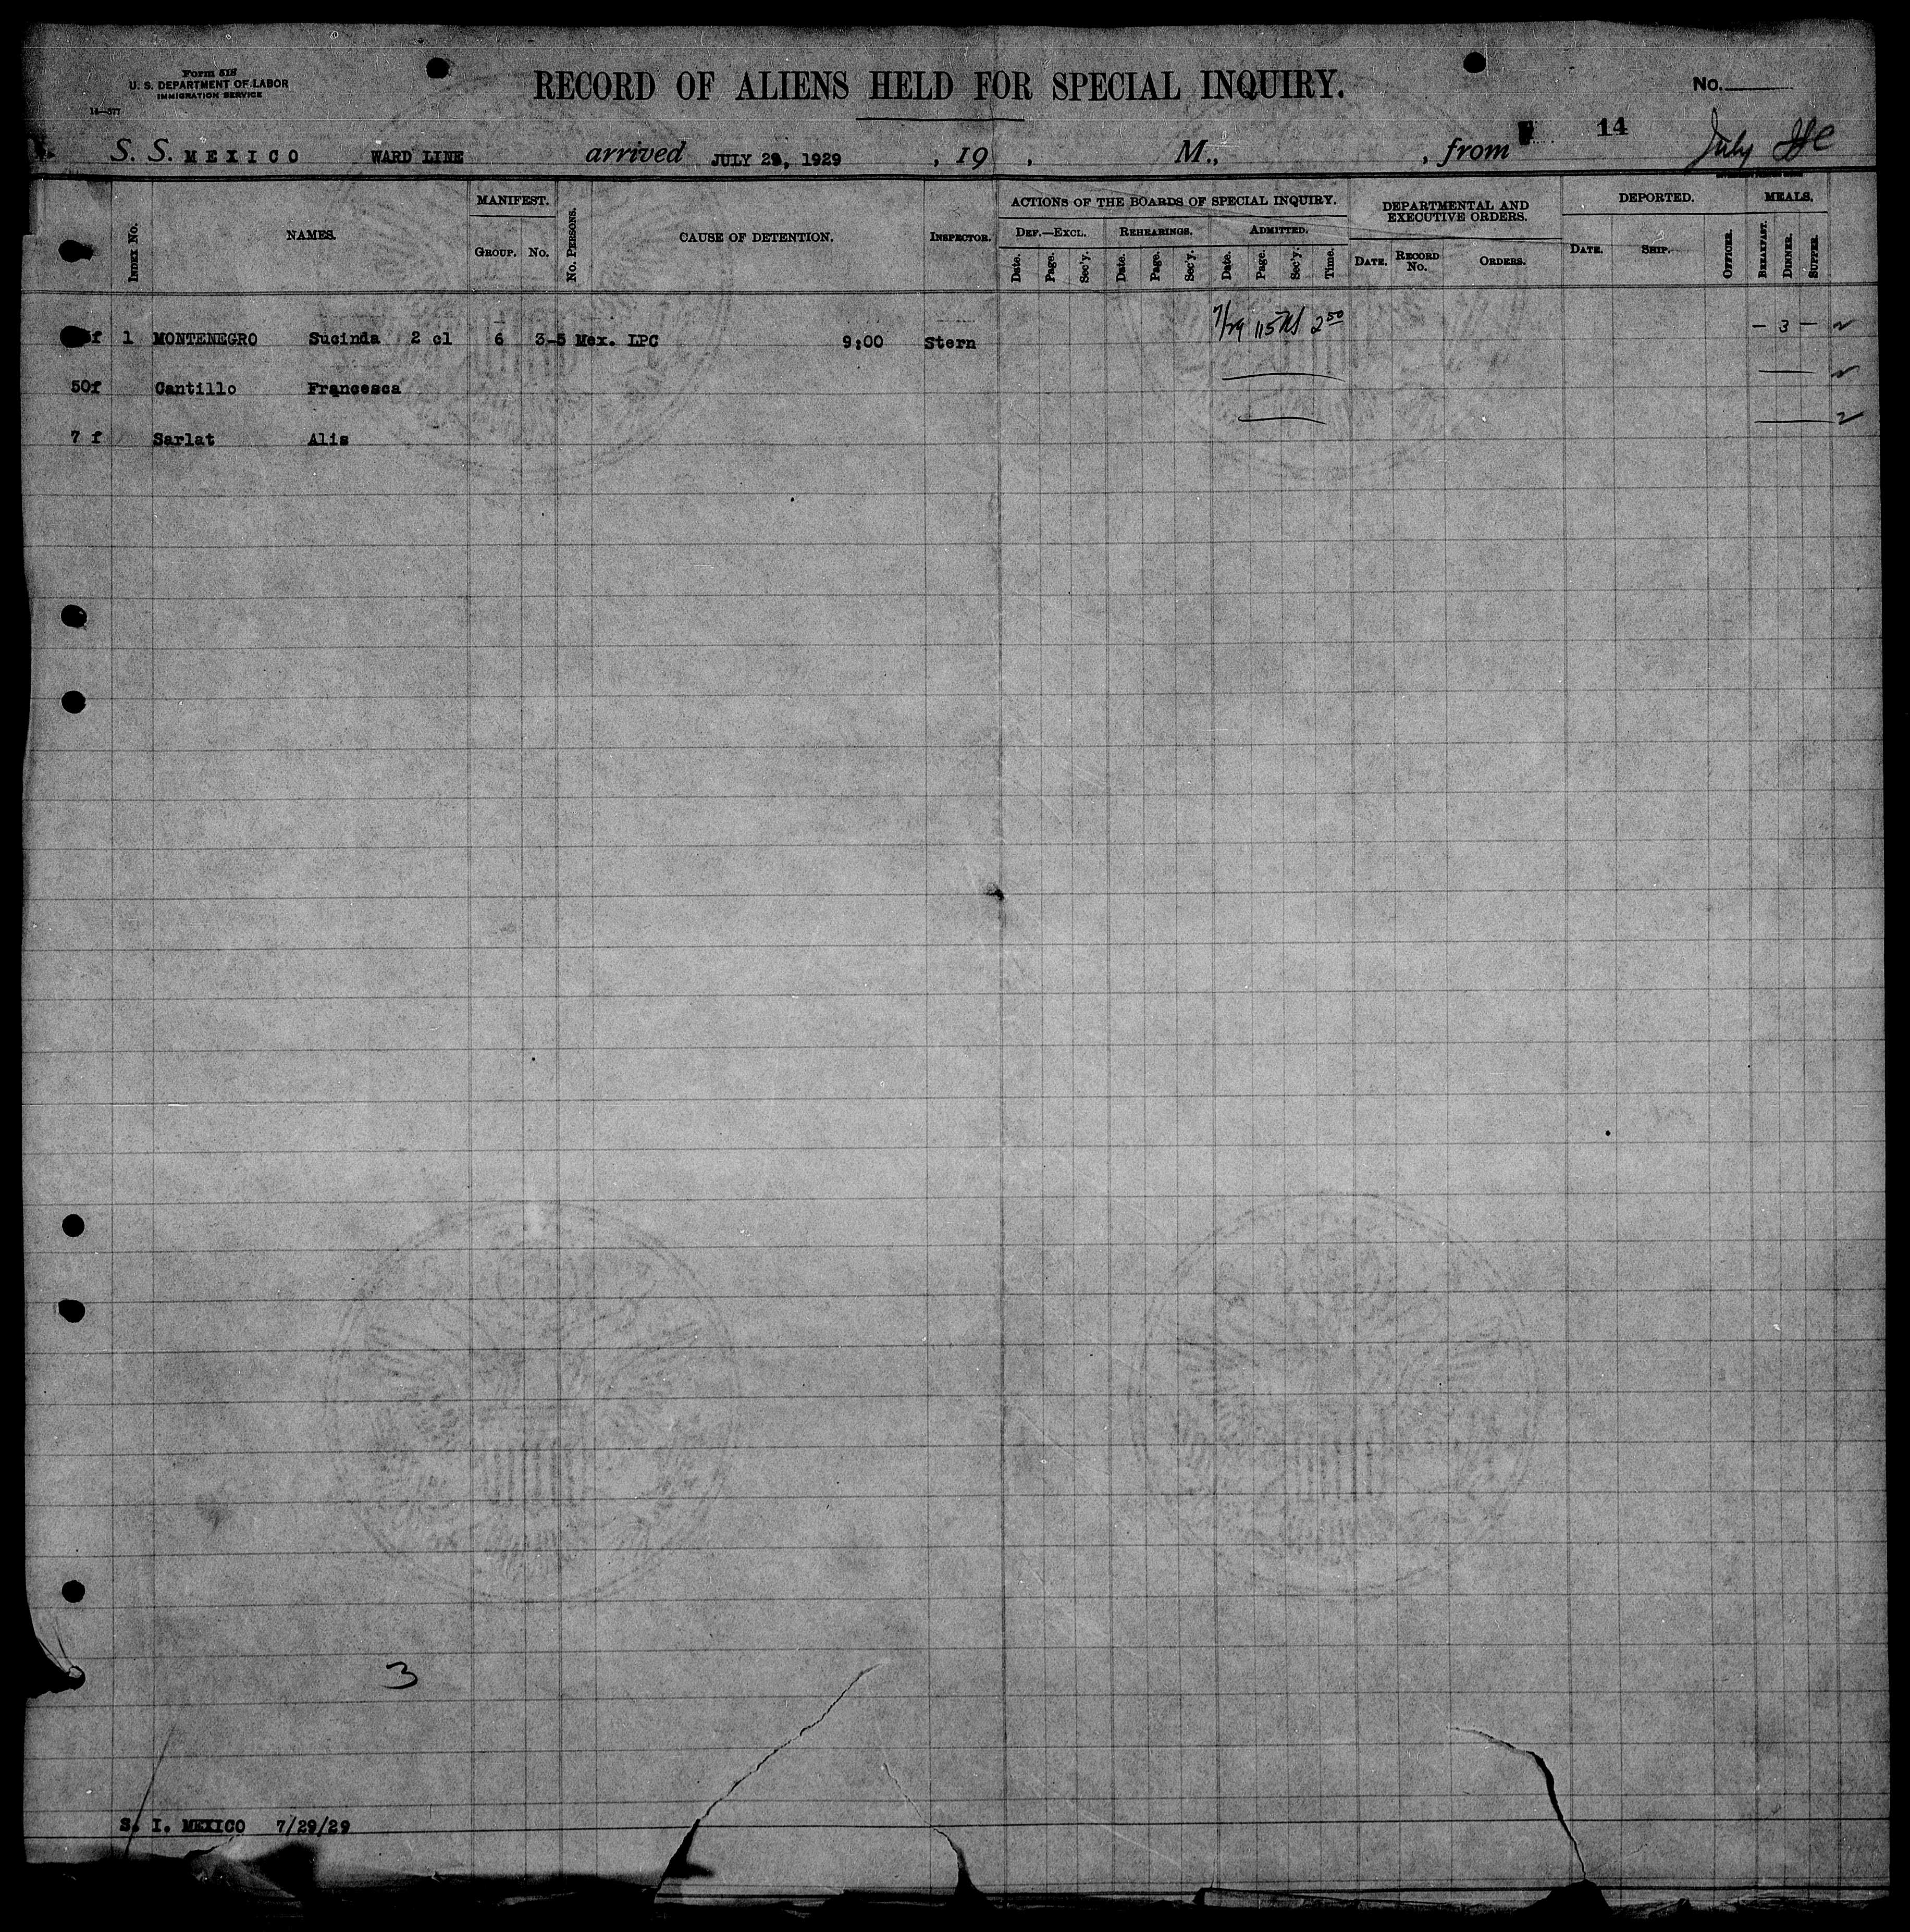 Form 518
U. S. DEPARTMENT OF LABOR
IMMIGRATION SERVICE
14—577
RECORD OF ALIENS HELD FOR SPECIAL INQUIRY.
No.
14
S. S. MEXICO WARD LINE arrived JULY 29, 1929 , 19 , M., , from July
INDEX No.
NAMES.
MANIFEST.
GROUP. No.
No. PERSONS.
CAUSE OF DETENTION.
INSPECTOR.
ACTIONS OF THE BOARDS OF SPECIAL INQUIRY.
DEF.—EXCL. REHEARINGS. ADMITTED.
Date. Page. Sec'y. Date. Page. Sec'y. Date. Page. Sec'y. Time.
DEPARTMENTAL AND EXECUTIVE ORDERS.
DATE. RECORD No. ORDERS.
DEPORTED.
DATE. SHIP. OFFICER.
MEALS.
BREAKFAST. DINNER. SUPPER.
f 1 MONTENEGRO Sucinda 2 cl 6 3-5 Mex. LPC 9:00 Stern 7/29 115 2 50 — 3 —
50f Cantillo Francesca
7 f Sarlat Alis
3
S. I. MEXICO 7/29/29